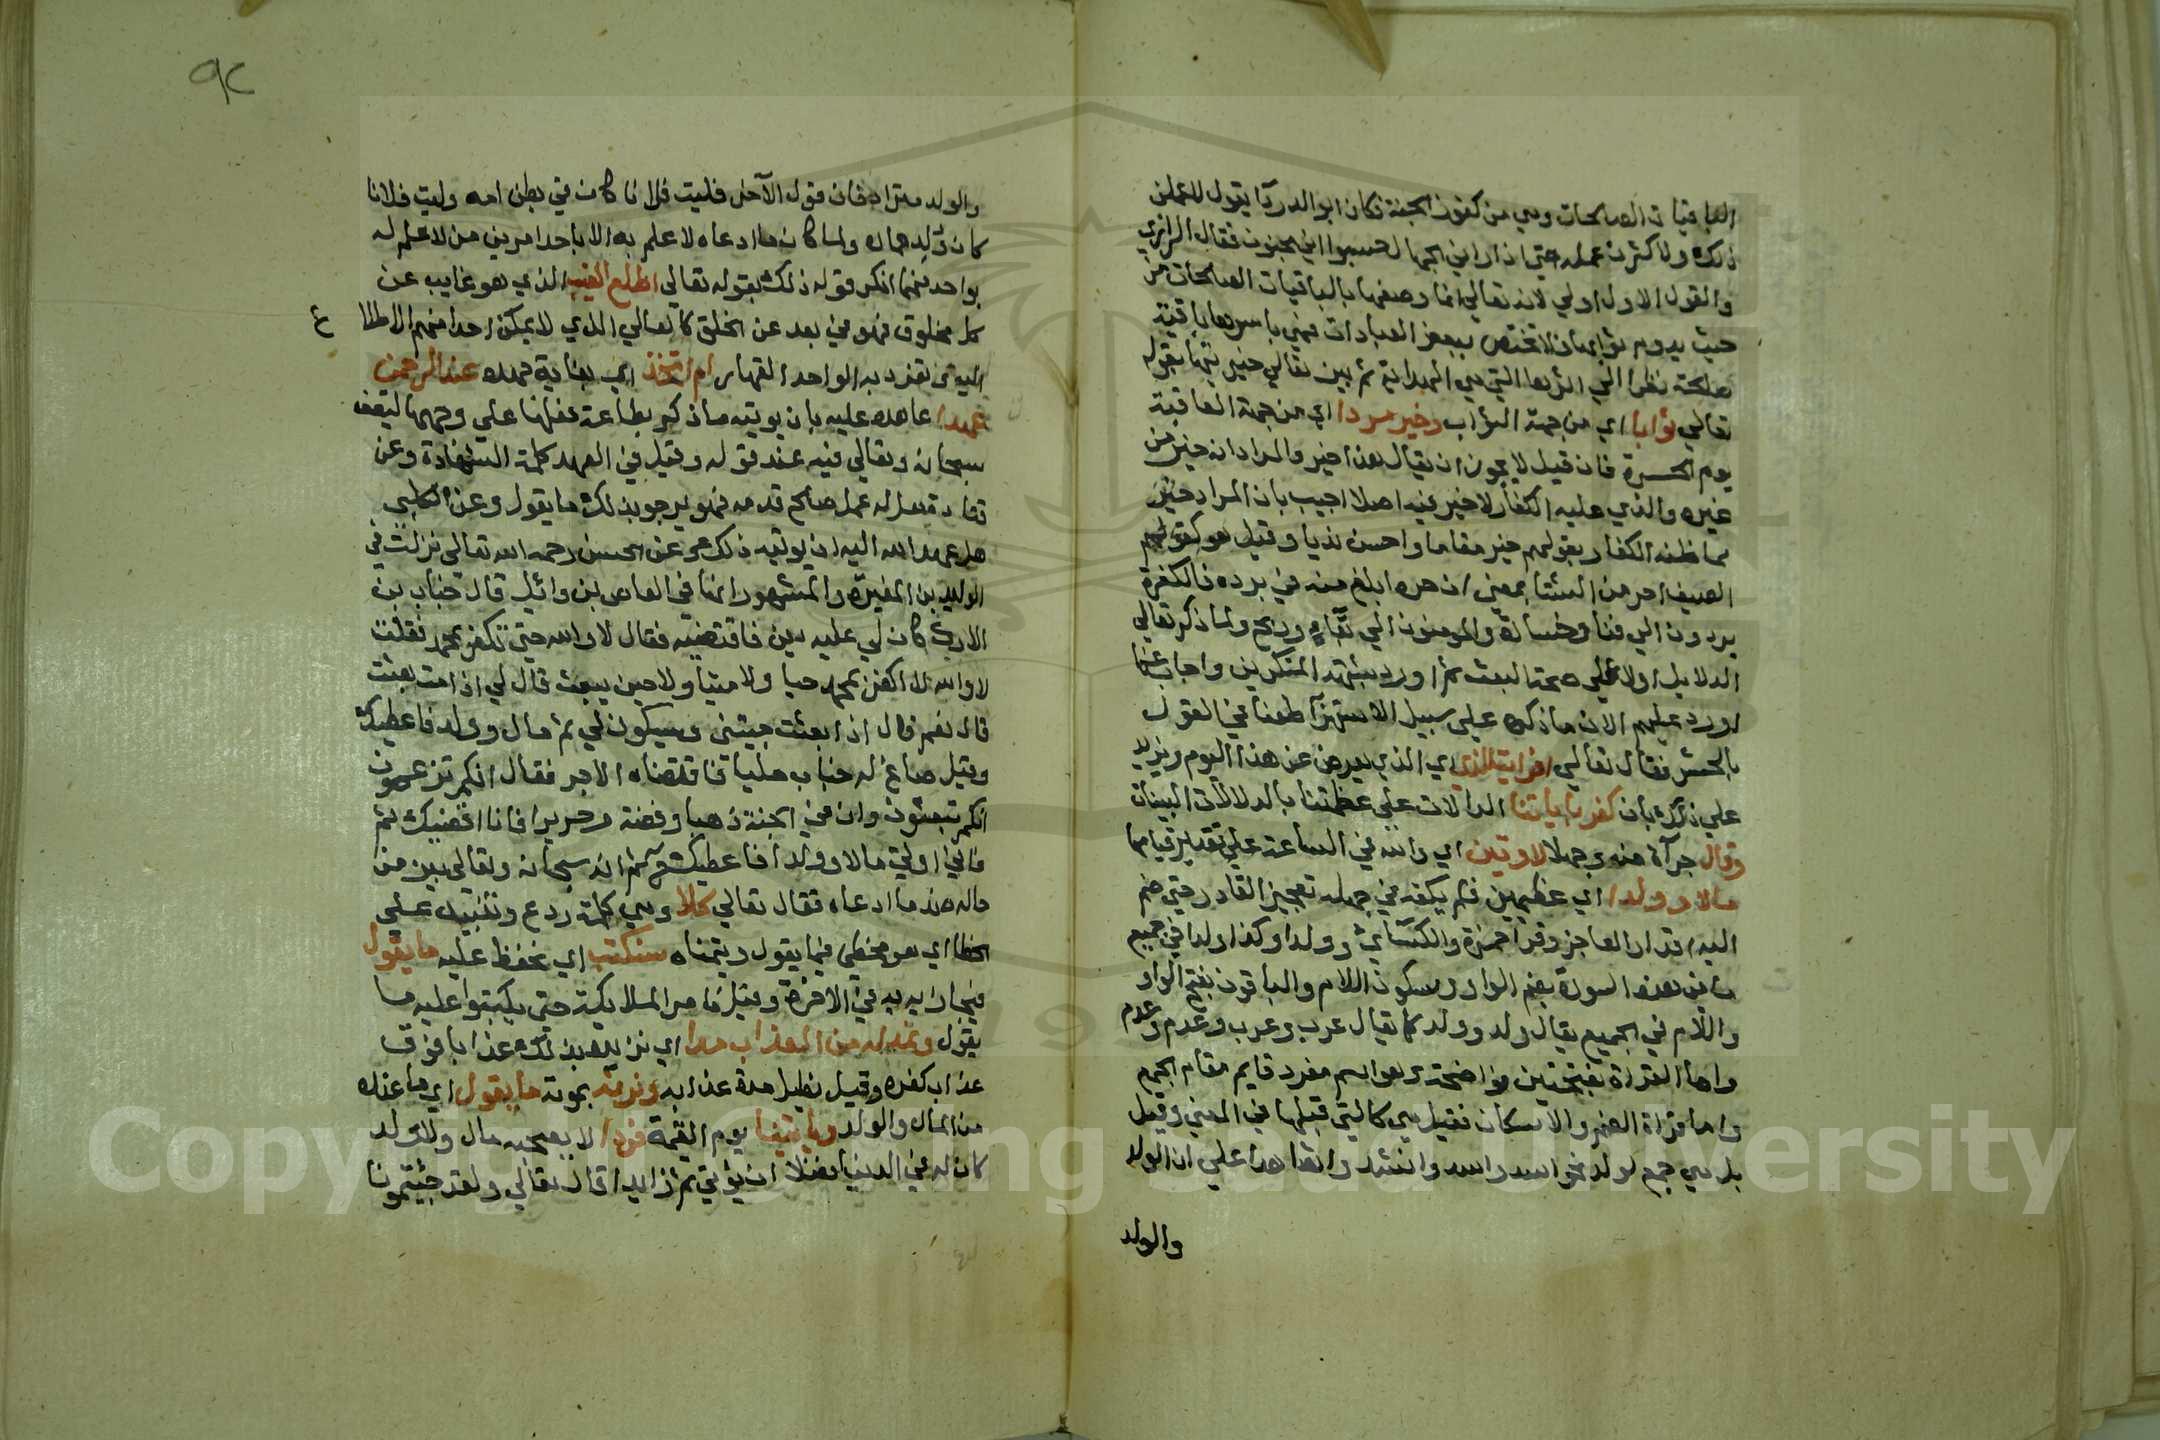 الباقيات الصالحات وهي من كنوز الجنة فكان ابو الدردآ يقول لاعملن
ذلك ولاكثرن عمله حتى اذا راني الجهال حسبوا اني مجنون فقال الرازي
والقول الاول اولي لانه تعالي انما وصفها بالباقيات الصالحات من
حيث يدوم ثوابها فلا تختص ببعض العبادات فهي باسرها باقية
صالحة نظرا الي اثرها التي هي الهداية ثم بين تعالي خيريتها بقوله
تعالي ثوابا اي من جهة الثواب وخير مردا اي من جهة العاقبة
يوم الحسرة فان قيل لا يجوز ان يقال هذا خير والمراد انه خير من
غيره والذي عليه الكفار لا خير فيه اصلا اجيب بان المراد خير
مما ظنه الكفار بقولهم خير مقاما واحسن نديا وقيل هو كقولهم
الصيف احر من الشتا بمعني ان حره ابلغ منه في برده فالكفرة
يردون الي فنا وخسارة والمومنون الي بقآء وربح ولما ذكر تعالي
الدلايل اولا علي صحة البعث ثم اورد شبهة المنكرين واجاب عنها
اورد عليهم الان ما ذكره علي سبيل الاستهزآ طعنا في القول
بالحشر فقال تعالي افرايت الذي اي الذي يعرض عن هذا اليوم ويزيد
علي ذلك بان كفر باياتنا الدالات علي عظمتنا بالدلالات البينات
وقال جرآة منه وجهلا لاوتين اي والله في الساعة علي تقدير قيامها
مالا وولدا اي عظيمين فلم يكفه في جهله تعجيز القادر حتي ضم
اليه اقدار العاجز وقرا حمزة والكسآئ وولدا وكذا ولدا في جميع
ما في هذه السورة بضم الواو وسكون اللام والباقون بفتح الواو
واللام في الجميع يقال ولد وولد كما يقال عرب وعرب وعدم وعدم
واما القراة بفتحتين فواضحة وهو اسم مفرد قايم مقام الجمع
واما قراة الضم والاسكان فقيل هي كالتي قبلها في المعني وقيل
بل هي جمع لولد نحو اسد واسد وانشد واشاهدا علي ان الولد
والولد
٩٢
والولد مترادفان قول الآخر فليت فلانا كان في بطن امه وليت فلانا
كان وُلد حمار ولما كان ما ادعاه لا علم به الا باحد امرين من لا علم له
بواحد منهما انكر قوله ذلك بقوله تعالي اطلع الغيب الذي هو غايب عن
كل مخلوق فهو في بعد عن الخلق كالعالي الذي لا يمكن احدا منهم الاطلا ع
اليه تفرد به الواحد القهار ام اتخذ اي بغاية جهده عند الرحمن
عهدا عاهده عليه بان يوتيه ما ذكر بطاعة فعلها علي وجهها ليقف
سبحانه وتعالي فيه عند قوله وقيل في العهد كلمة الشهادة وعن
قتادة هل له عمل صالح قدمه فهو يرجو بذلك ما يقول وعن الكلبي
هل عهد الله اليه ان يوتيه ذلك وعن الحسن رحمه الله تعالي نزلت في
الوليد بن المغيرة والمشهور انها في العاص ابن وائل قال خباب بن
الارت كان لي عليه دين فاقتضيته فقال لا والله حتي تكفر بمحمد فقلت
لا والله لا اكفر بمحمد حيا ولا ميتا ولا حين يبعث قال لي اذا مت بعثت
قال نعم قال اذا بعثت جيتني وسيكون لي ثم مال وولد فاعطيك
وقيل صاغ له خباب حليا فاقتضاه الاجر فقال انكم تزعمون
انكم تبعثون وان في الجنة ذهبا وفضة وحريرا فانا اقضيك ثم
فاني اوتي مالا وولدا فاعطيك ح ثم انه سبحانه وتعالي بين من
حاله ضد ما ادعاه فقال تعالي كلا وهي كلمة ردع وتنبيه علي
الخطا اي هو مخطي فيما يقول ويتمناه سنكتب اي نحفظ عليه ما يقول
فنجازيه به في الاخرة وقيل نامر الملايكة حتى يكتبوا عليه ما
يقول ونمد له من العذاب مدا اي نزيده بذلك عذابا فوق
عذاب كفره وقيل نطيل مدة عذابه ونرثه بموته ما يقول اي ما عنده
من المال والولد وياتينا يوم القيمة فردا لا يصحبه مال ولا ولد
كان له في الدنيا فضلا ان يؤتي ثم زايدا قال تعالي ولقد جئتمونا